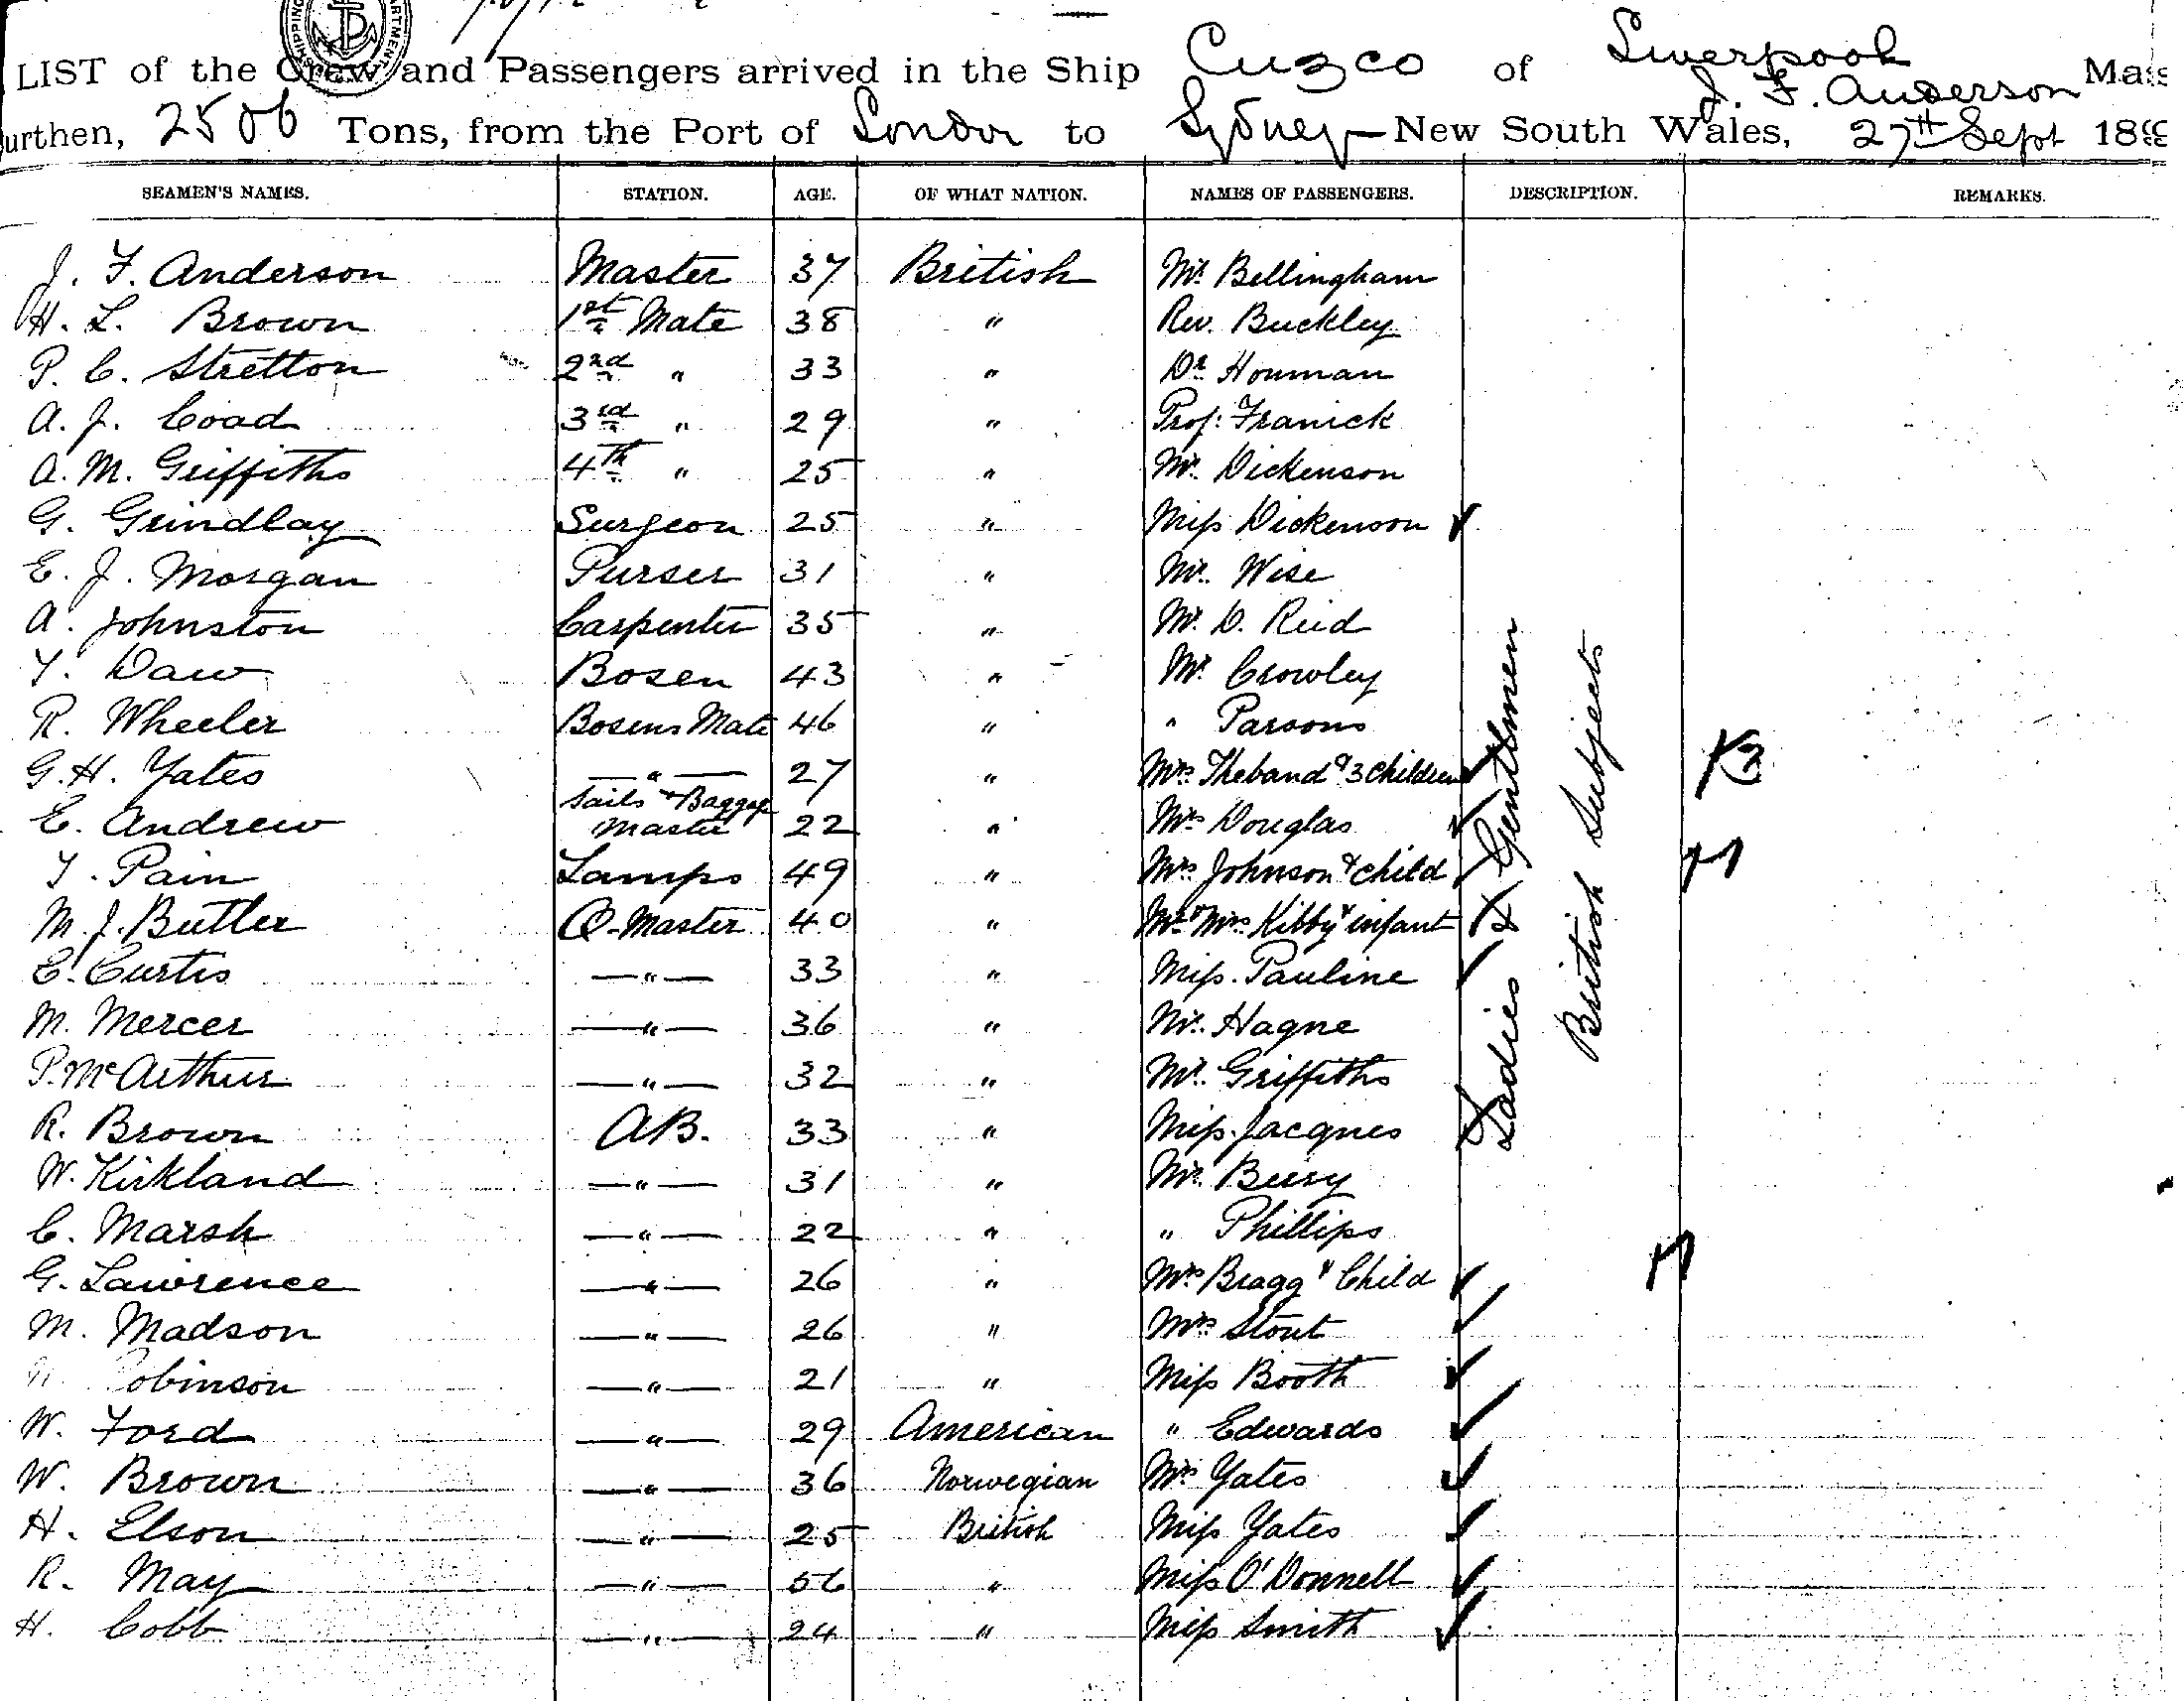 LIST of the Crew and Passengers arrived in the Ship Cuzco of Liverpool J. F. Anderson Mas
urthen, 2506 Tons, from the Port of London to Sydney New South Wales, 27th Sept 18
SEAMEN'S NAMES. STATION. AGE. OF WHAT NATION. NAMES OF PASSENGERS. DESCRIPTION. REMARKS.
J. F. Anderson Master 37 British Mr. Bellingham
H. L. Brown 1st Mate 38 " Rev. Buckley
P. C. Stretton 2nd " 33 " Dr Houman
A. J. Coad 3rd " 29 " Prof: Franick
A. M. Griffiths 4th " 25 " Mr. Dickenson
G. Grindlay Surgeon 25 " Miss Dickenson
E. J. Morgan Purser 31 " Mr. Wise
A. Johnston Carpenter 35 " Mr. D. Reid
T. Daw Bosen 43 " Mr. Crowley
R. Wheeler Bosens Mate 46 " " Parsons
G. H. Yates " 27 " Mrs Theband & 3 children
E. Andrew Sails & Baggage Master 22 " Mrs Douglas
T. Pain Lamps 49 " Mrs Johnson & child
M. J. Butler Q-Master 40 " Mr & Mrs Kibby & infant
E. Curtis " 33 " Miss. Pauline
M. Mercer " 36 " Mr. Hagne
P. McArthur " 32 " Mr. Griffiths
R. Brown AB. 33 " Miss. Jacques
W. Kirkland " 31 " Mr. Berry
C. Marsh " 22 " " Phillips
G. Lawrence " 26 " Mrs Bragg & Child
M. Madson " 26 " Mrs Stout
obinson " 21 " Miss Booth
W. Ford " 29 American " Edwards
W. Brown " 36 Norwegian Mrs Yates
H. Elson " 25 British Miss Yates
R. May " 56 " Miss O'Donnell
H. Cobb " 24 " Miss Smith
Ladies & Gentlemen
British Subjects